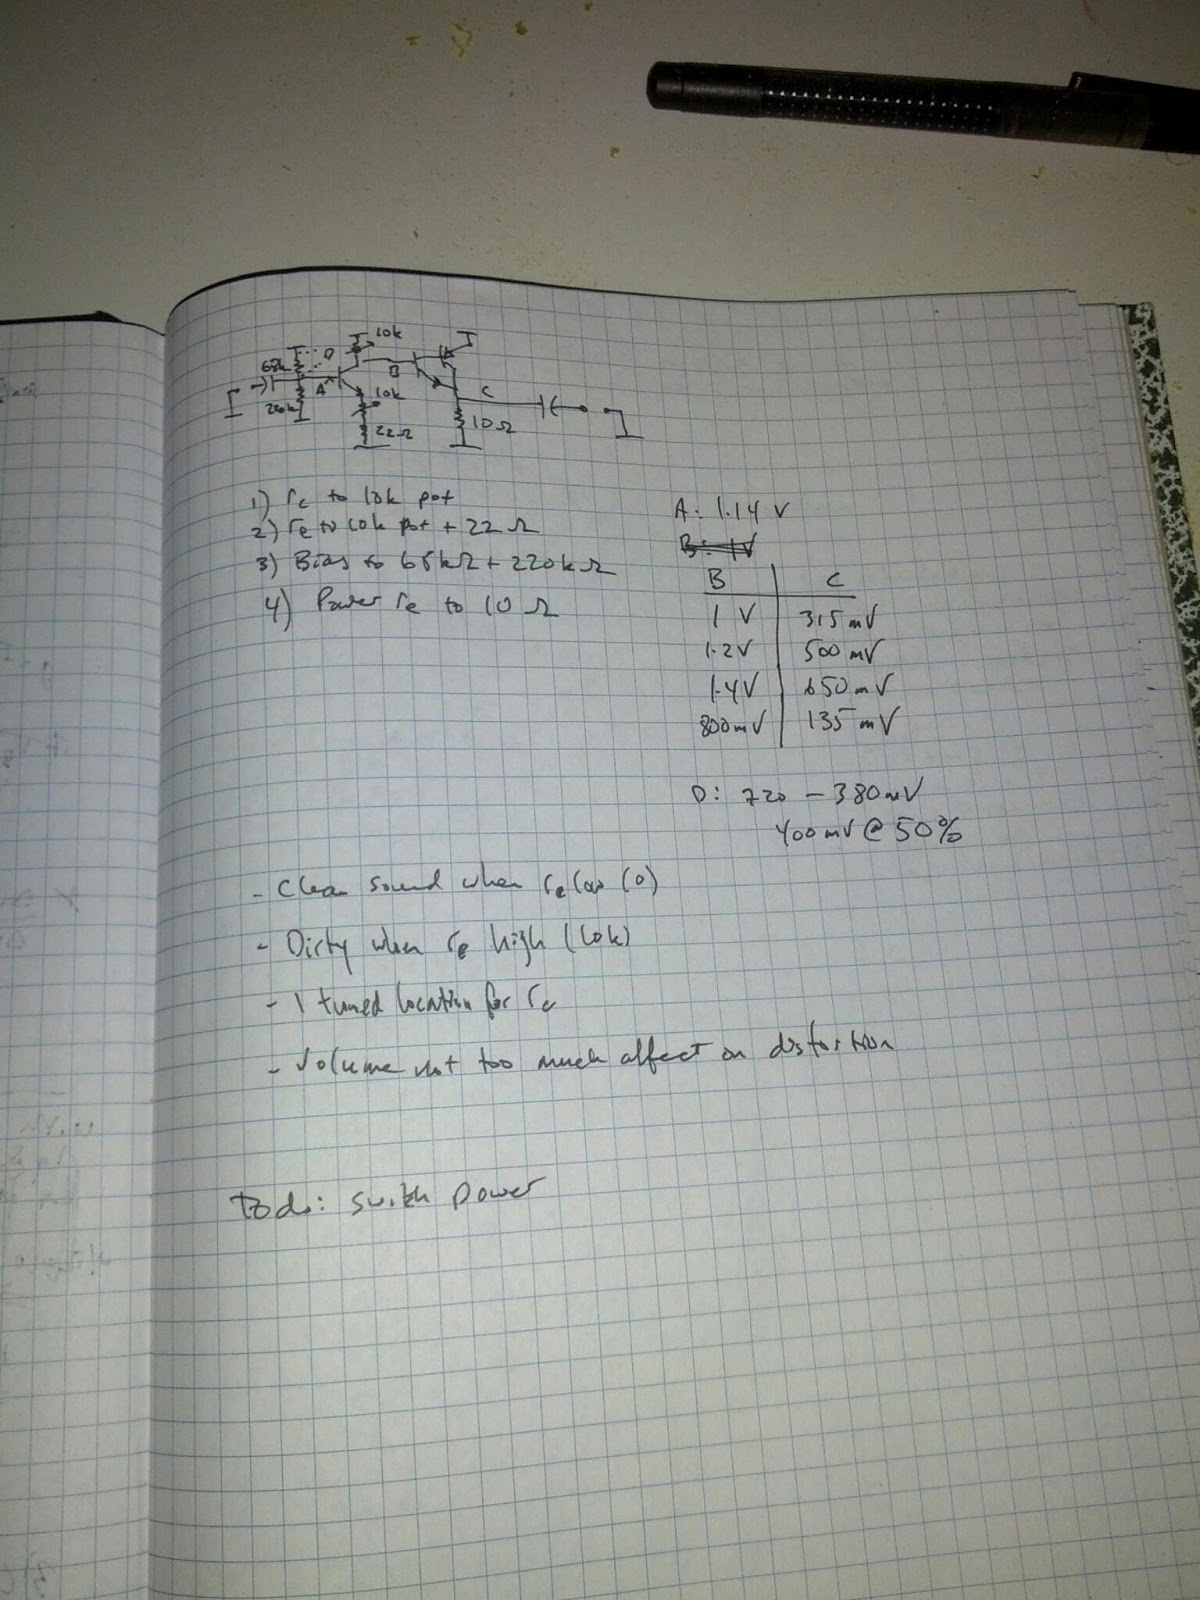 10k
D
68k
B
A
C
10k
220k
22Ω
10Ω
1) rc to 10k pot
2) re to 10k pot + 22Ω
3) Bias to 68kΩ + 220kΩ
4) Power re to 10Ω
A: 1.14 V
B: 1V
B C
1 V 315 mV
1.2V 500 mV
1.4V 650 mV
800mV 135 mV
D: 720 - 380mV
400mV @ 50%
- Clean sound when re low (0)
- Dirty when re high (10k)
- 1 tuned location for rc
- Volume not too much affect on distortion
todo: switch power